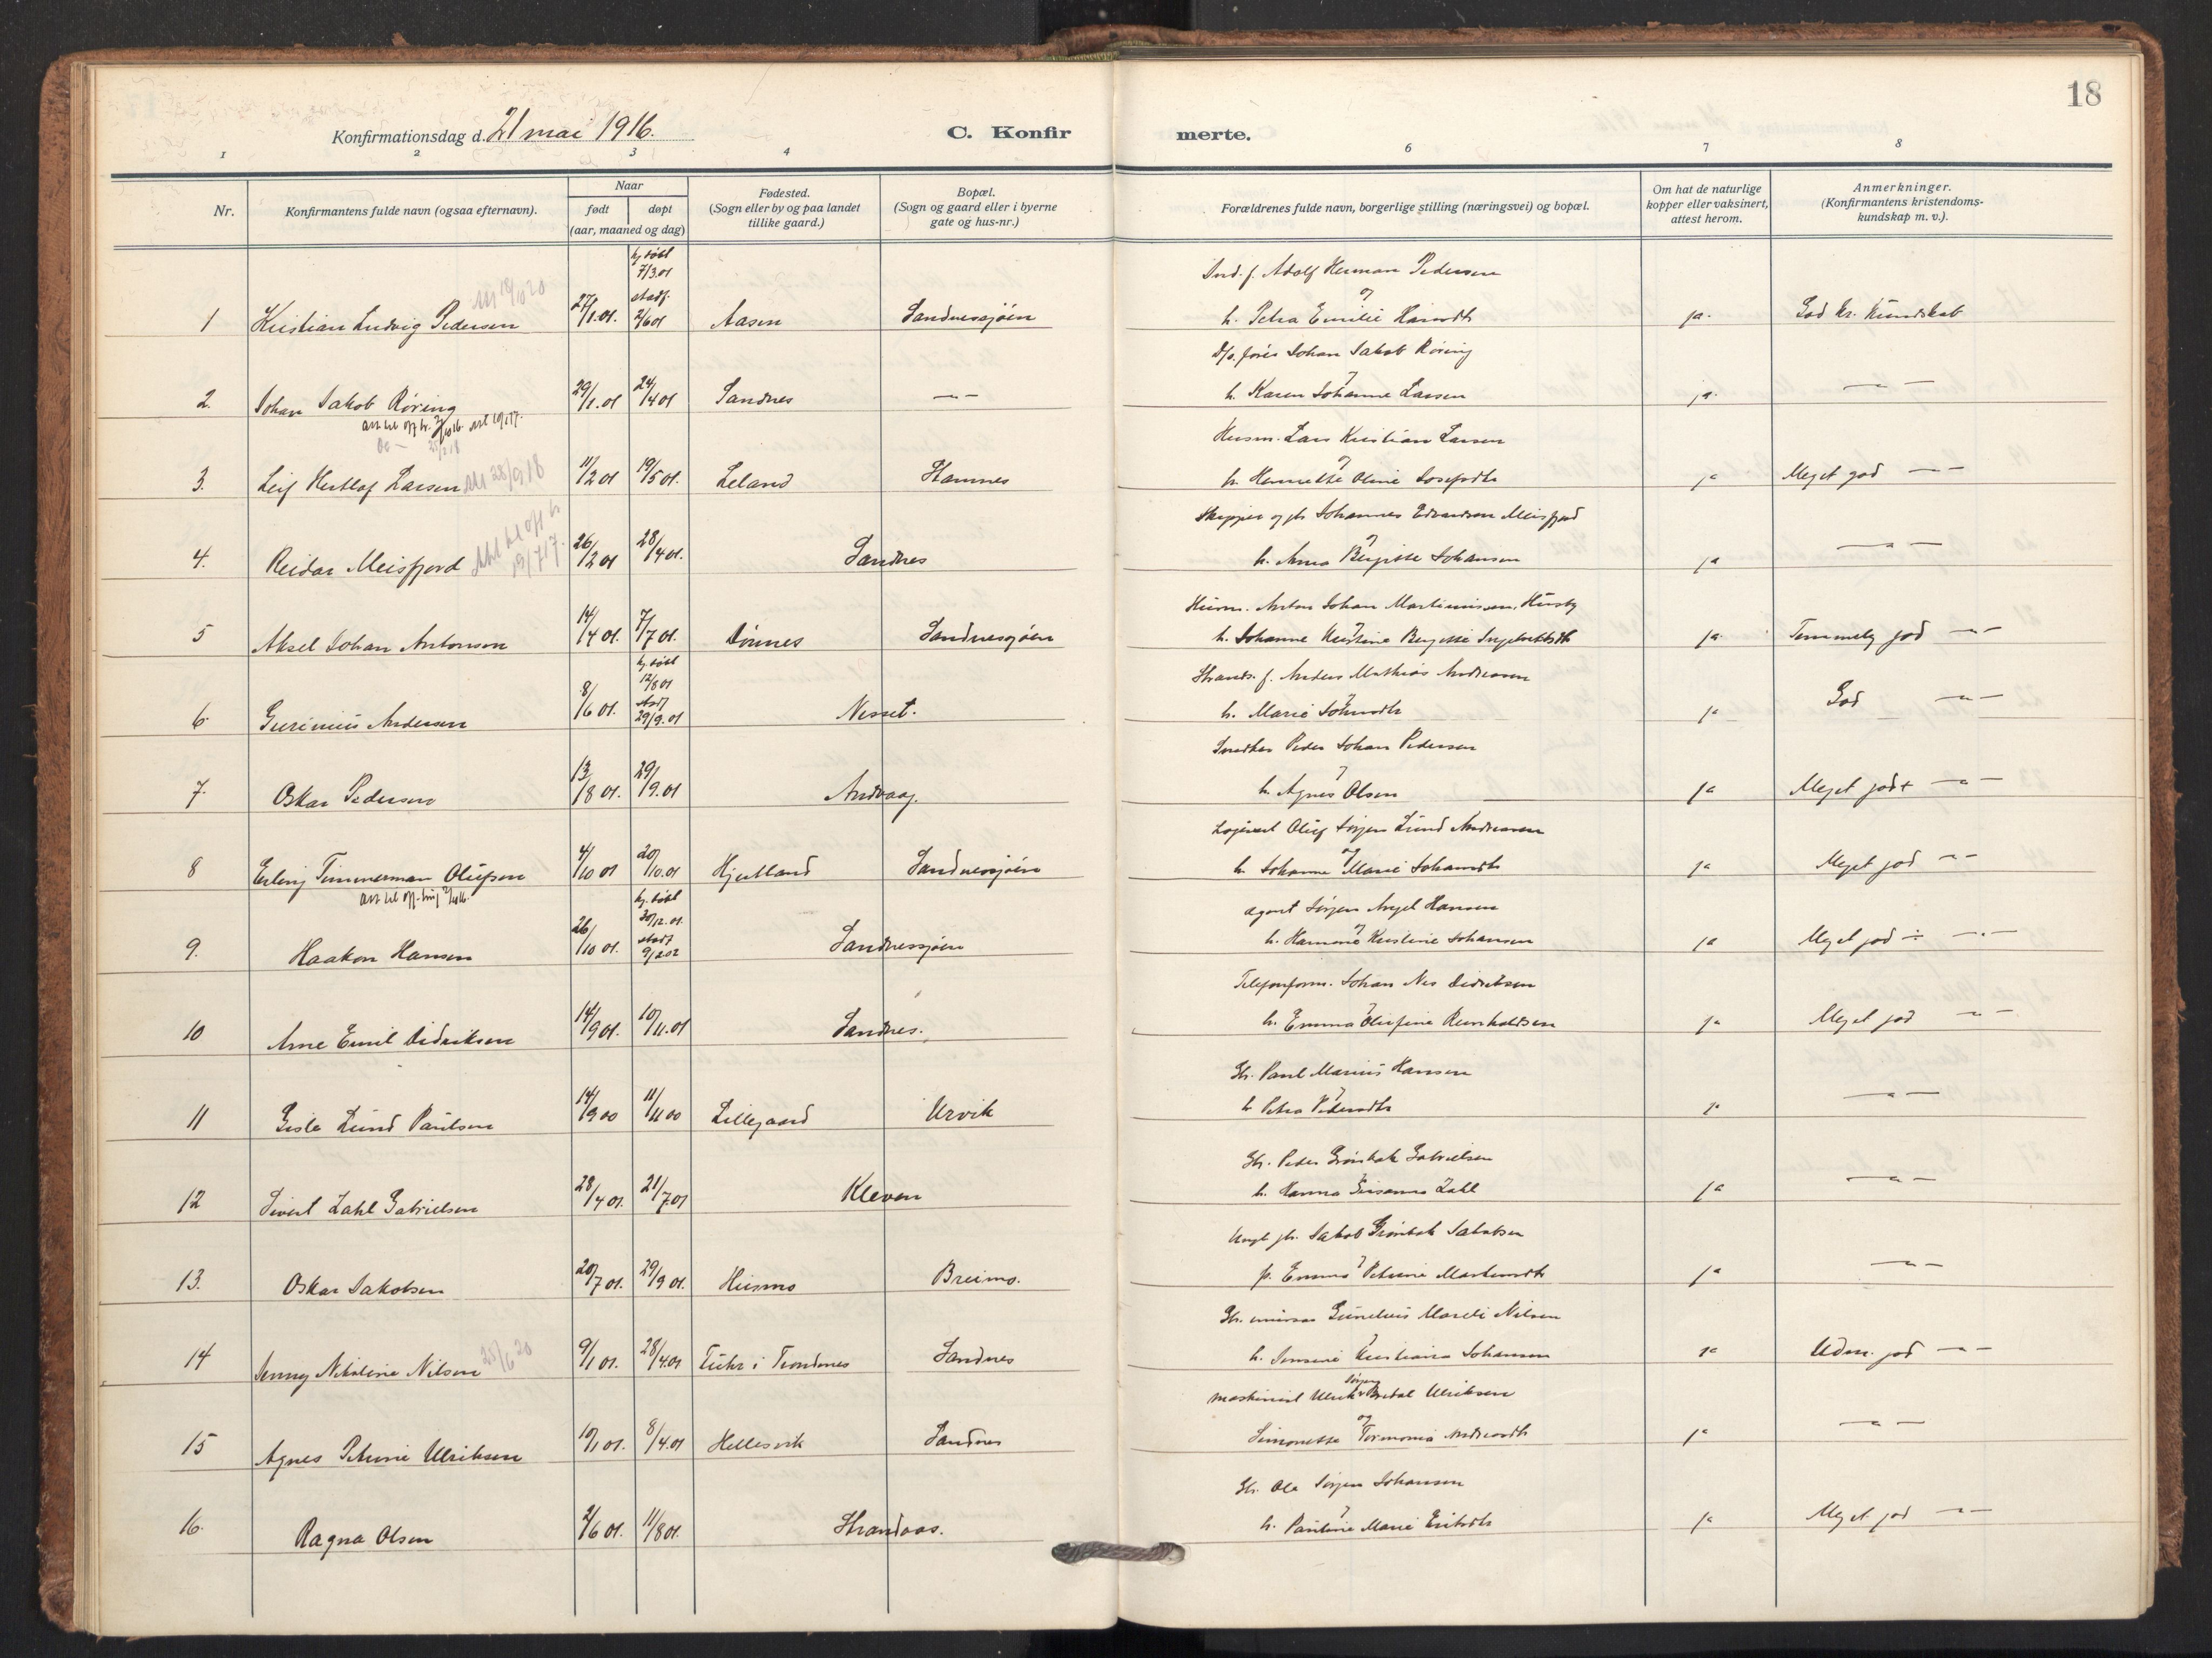 18
Konfirmationsdag d. 21 mai 1916.
C. Konfirmerte.
1 2 3 4 6 7 8
Nr.
Konfirmantens fulde navn (ogsaa efternavn).
Naar
født døpt
(aar, maaned og dag)
Fødested.
(Sogn eller by og paa landet
tillike gaard.)
Bopæl.
(Sogn og gaard eller i byerne
gate og hus-nr.)
Forældrenes fulde navn, borgerlige stilling (næringsvei) og bopæl.
Om hat de naturlige
kopper eller vaksinert,
attest herom.
Anmerkninger.
(Konfirmantens kristendoms-
kundskap m. v.).
hj. døbt
7/3.01
stadf.
Adolf Herman Pedersen
og
1 Kristian Ludvig Pedersen 27/1.01. 2/6 01 Aasen Sandnessjøen h. Petra Emilie ja. God kr. kundskab
Johan Jakob Røring
og
2. Johan Jakob Røring 29/1.01 24/4 01 Sandnes — " — h. Karen Johanne Larsen ja. — " —
Husm. Lars Kristian Larsen
og
3. Leif Larsen 28/9 18 11/2 01 19/5 01. Leland Hamnes h. Oline ja Meget god — " —
Skipper og gbr. Johannes Edvardsen Meisfjord
og
4. Reidar Meisfjord 19/7 17. 26/2 01 28/4 01. Sandnes h. Anna Bergitte Johansen ja — " —
Husm. Anton Johan Husby
og
5 Aksel Johan Antonsen 14/4 01. 7/7 01. Dønnes Sandnessjøen h. Johanne Kristine ja Temmelig god — " —
hj. døbt
12/8 01
stadf
Strands. f. Anders Mathias Andreasen
og
6. Andersen 8/6 01. 29/9.01 Nesset. h. Marie ja God — " —
Snedker Peder Johan Pedersen
og
7. Oskar Pedersen 13/8 01. 29/9.01 Andvaag. h. Agnes Olsen ja Meget god + — " —
Oluf Jørgen Lund Andreasen
og
8 Erling Timmerman Olufsen 4/10 01 20/10.01 Hjertland Sandnessjøen h. Johanne Marie Johansdtr ja Meget god — " —
hj. døbt
30/12.01.
stadf
Agent Jørgen Angel Hansen
og
9. Haakon Hansen 26/10 01. 9/2 02 Sandnessjøen h. Kristine Johansen ja Meget god ÷ — " —
Telefonform. Johan Nes Didriksen
og
10 Arne Emil Didriksen 14/9 01. 10/11.01 Sandnes. h. Emma Olufine Reinholdsen ja Meget god — " —
Gbr. Paul Marius Hansen
og
11 Gisle Lund Paulsen 14/9 00 11/11 00 Lillegaard Urvik h. Petra Pedersdtr ja — " —
Gbr. Peder Grønbek Gabrielsen
12 Sivert Zahl Gabrielsen 28/4 01. 21/7.01 Kleven h. Hanna Susanna Zahl ja — " —
Jakob Grønbek Jakobsen
og
13. Oskar Jakobsen 20/7 01. 29/9 01. Husmo Breimo. p. Emma Petrine ja — " —
Gbr. Nilsen
og
14 Jenny Nikoline Nilsen 25/6 20 9/1 01. 28/4.01 i Trondenes Sandnes h. Kristiana Johansen ja Udm. god — " —
Jørgen
Maskinist Ulrik Ulriksen
og
15 Agnes Petrine Ulriksen 10/1 01. 8/4.01 Hellesvik Sandnes Simonette Andreasdtr ja — " —
Gbr. Ole Jørgen Johansen
og
16. Ragna Olsen 2/6 01. 11/8 01. Strandaas. h. Pauline Marie ja Meget god — " —